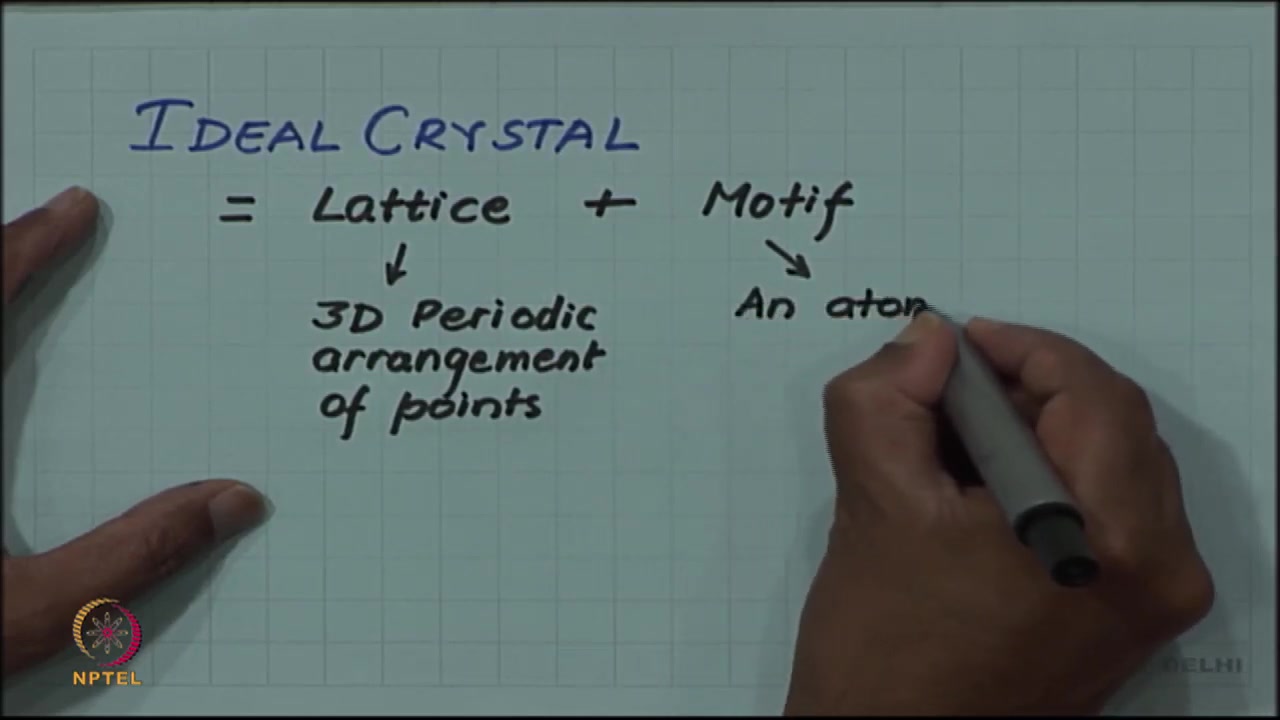 IDEAL CRYSTAL
= Lattice + Motif
↓ ↘
3D Periodic An atom
arrangement
of points
NPTEL
DELHI